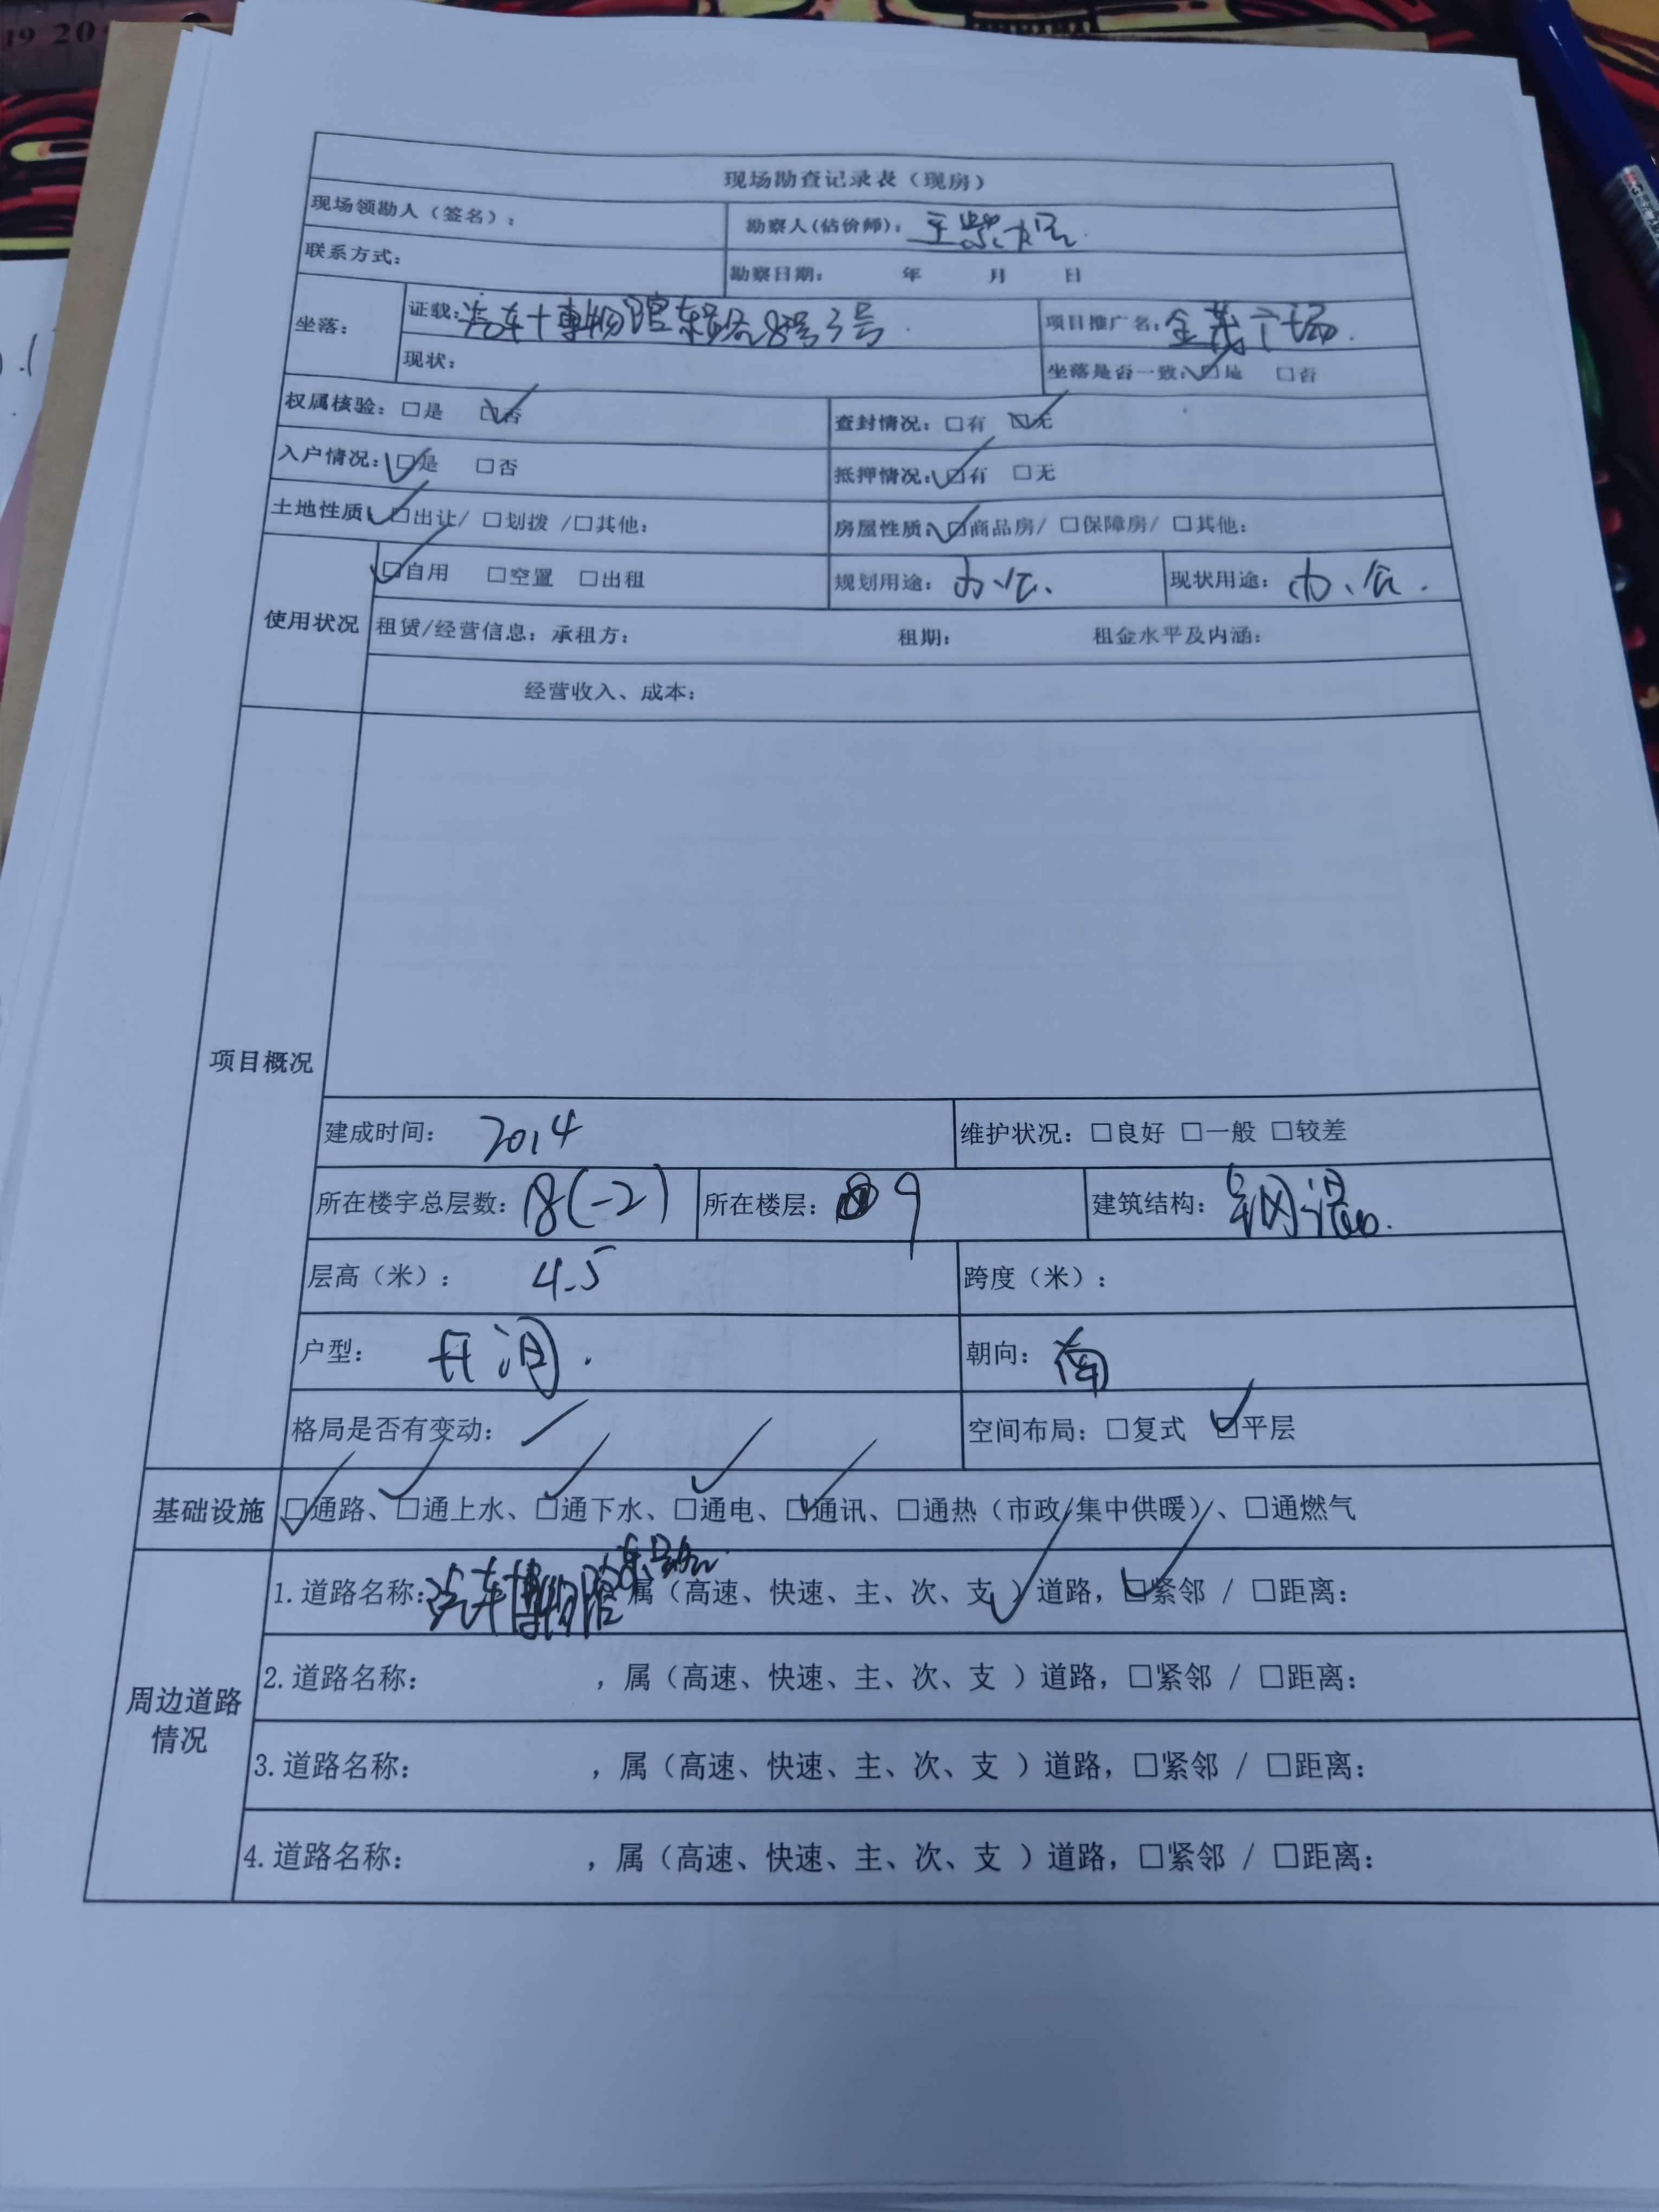 19 20
现场勘查记录表（现房）
现场领勘人（签名）： 勘察人(估价师)： 王
联系方式： 勘察日期： 年 月 日
坐落： 证载：汽车博物馆东路8号3号 项目推广名：金茂广场
现状： 坐落是否一致：☑是 □否
权属核验：□是 ☑否 查封情况：□有 ☑无
入户情况：☑是 □否 抵押情况：☑有 □无
土地性质：☑出让/ □划拨 /□其他： 房屋性质：☑商品房/ □保障房/ □其他：
使用状况 ☑自用 □空置 □出租 规划用途：办公 现状用途：办公
租赁/经营信息：承租方： 租期： 租金水平及内涵：
经营收入、成本：
项目概况
建成时间：2014 维护状况：□良好 □一般 □较差
所在楼宇总层数：18(-2) 所在楼层：9 建筑结构：钢混
层高（米）：4.5 跨度（米）：
户型：开间 朝向：南
格局是否有变动：/ 空间布局：□复式 ☑平层
基础设施 ☑通路、☑通上水、☑通下水、☑通电、☑通讯、□通热（市政/集中供暖）、□通燃气
周边道路情况
1.道路名称：汽车博物馆东路 属（高速、快速、主、次、支✓）道路，☑紧邻 / □距离：
2.道路名称： ，属（高速、快速、主、次、支 ）道路，□紧邻 / □距离：
3.道路名称： ，属（高速、快速、主、次、支 ）道路，□紧邻 / □距离：
4.道路名称： ，属（高速、快速、主、次、支 ）道路，□紧邻 / □距离：